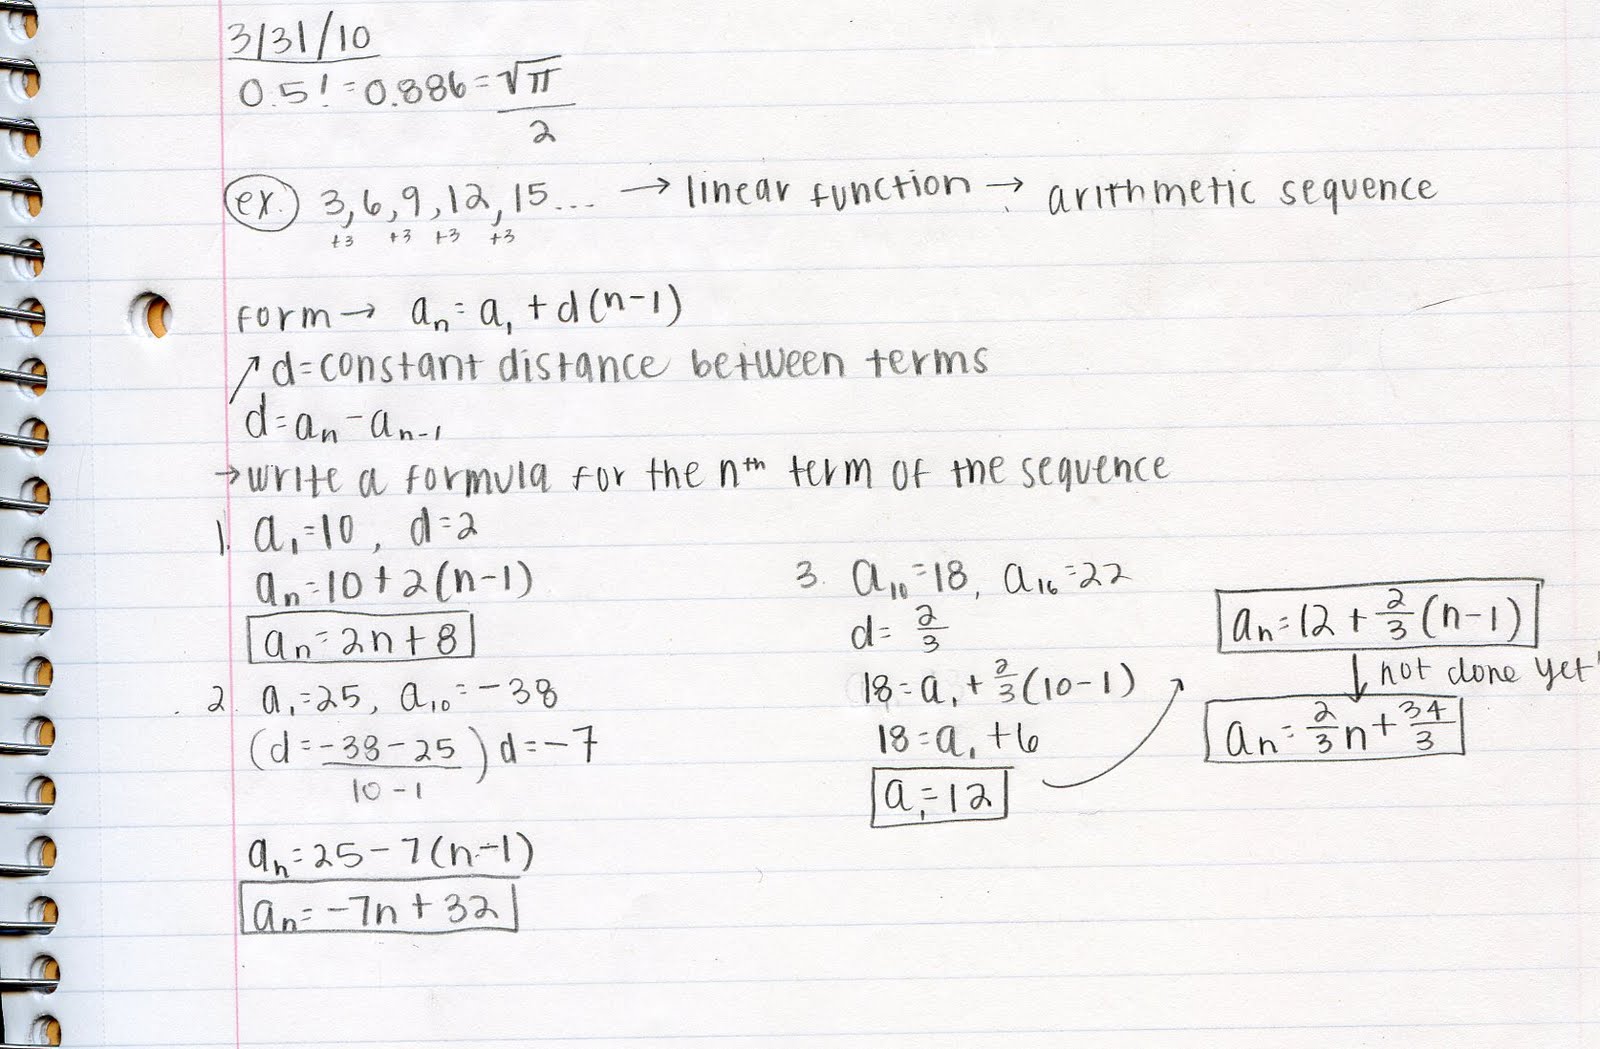 3/31/10
0.5! = 0.886 = √π/2
ex. 3, 6, 9, 12, 15... → linear function → arithmetic sequence
+3 +3 +3 +3
form → aₙ = a₁ + d(n-1)
d = constant distance between terms
d = aₙ - aₙ₋₁
→ write a formula for the nᵗʰ term of the sequence
1. a₁ = 10, d = 2
aₙ = 10 + 2(n-1)
aₙ = 2n + 8
2. a₁ = 25, a₁₀ = -38
(d = (-38 - 25)/(10 - 1)) d = -7
aₙ = 25 - 7(n-1)
aₙ = -7n + 32
3. a₁₀ = 18, a₁₆ = 22
d = 2/3
18 = a₁ + 2/3(10-1)
18 = a₁ + 6
a₁ = 12
aₙ = 12 + 2/3(n-1)
↓ not done yet!
aₙ = 2/3n + 34/3